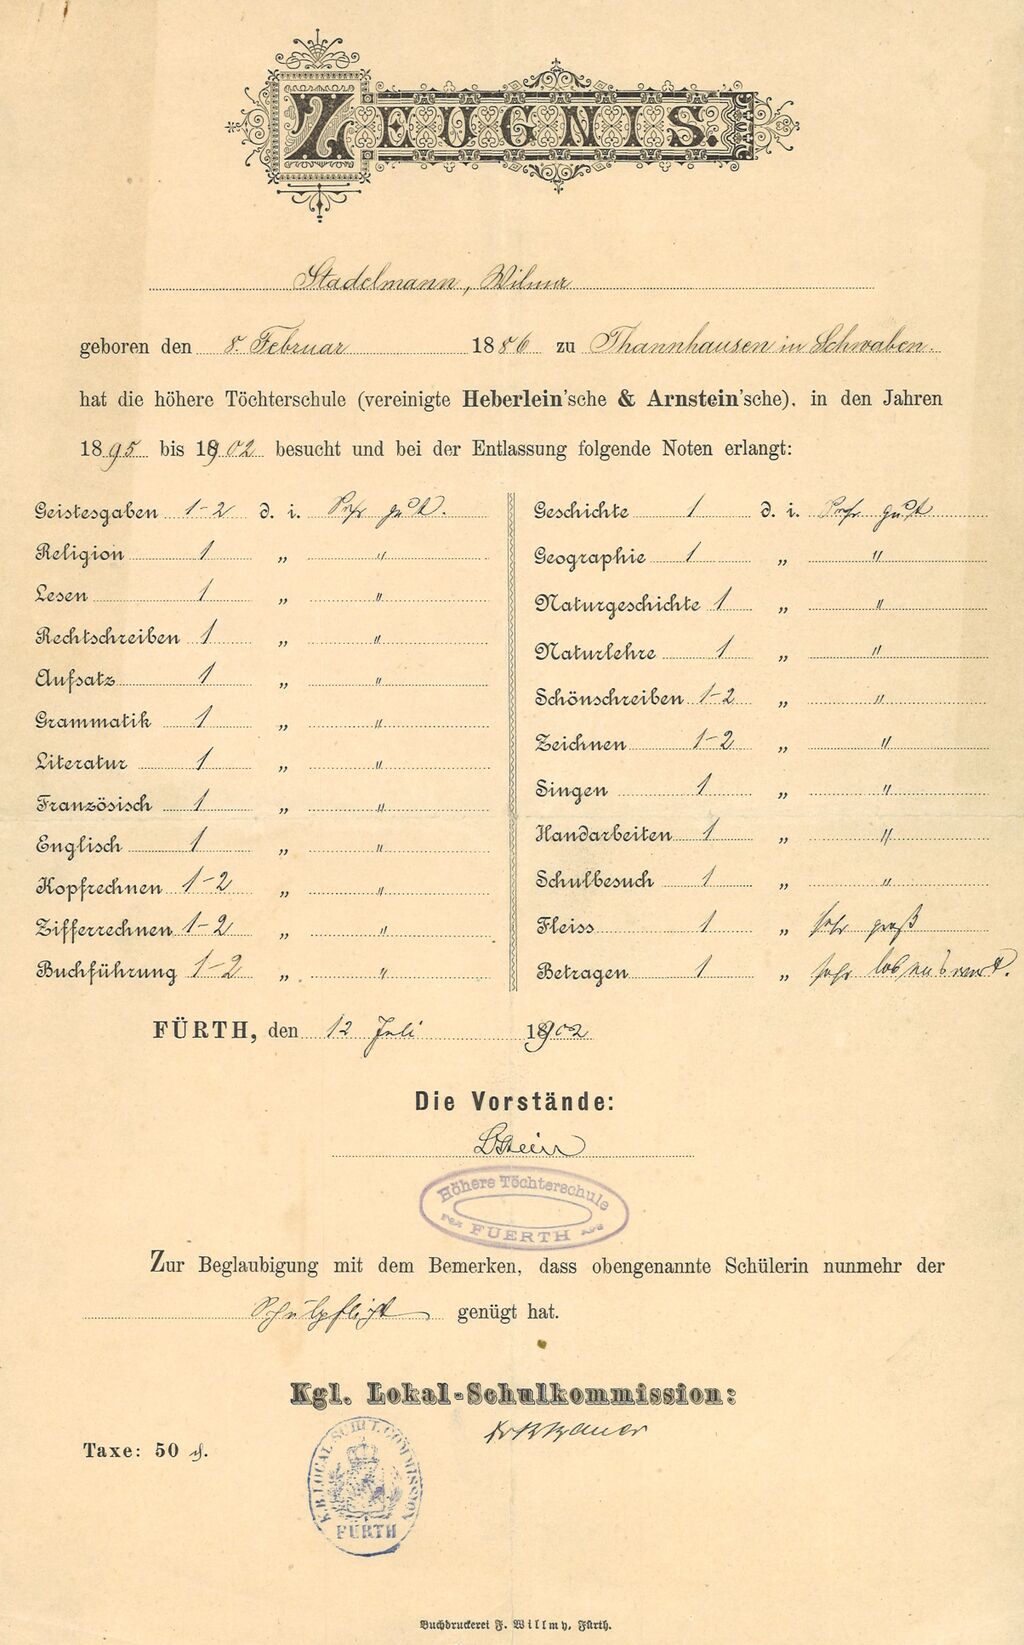 ZEUGNIS.
Stadelmann, Wilma
geboren den 8. Februar 1886 zu Thannhausen in Schwaben.
hat die höhere Töchterschule (vereinigte Heberlein'sche & Arnstein'sche), in den Jahren
1895 bis 1902 besucht und bei der Entlassung folgende Noten erlangt:
Geistesgaben 1-2 d. i. Sehr gut.
Religion 1 „ "
Lesen 1 „ "
Rechtschreiben 1 „ "
Aufsatz 1 „ "
Grammatik 1 „ "
Literatur 1 „ "
Französisch 1 „ "
Englisch 1 „ "
Kopfrechnen 1-2 „ "
Zifferrechnen 1-2 „ "
Buchführung 1-2 „ "
Geschichte 1 d. i. Sehr gut
Geographie 1 „ "
Naturgeschichte 1 „ "
Naturlehre 1 „ "
Schönschreiben 1-2 „ "
Zeichnen 1-2 „ "
Singen 1 „ "
Handarbeiten 1 „ "
Schulbesuch 1 „ "
Fleiss 1 „ sehr groß
Betragen 1 „ sehr lobenswert.
FÜRTH, den 12 Juli 1902
Die Vorstände:
Höhere Töchterschule
FUERTH
Zur Beglaubigung mit dem Bemerken, dass obengenannte Schülerin nunmehr der
Schulpflicht genügt hat.
Kgl. Lokal-Schulkommission:
Taxe: 50 ₰.
K.B. LOCAL-SCHUL-COMMISSION
FÜRTH
Buchdruckerei F. Willmy, Fürth.